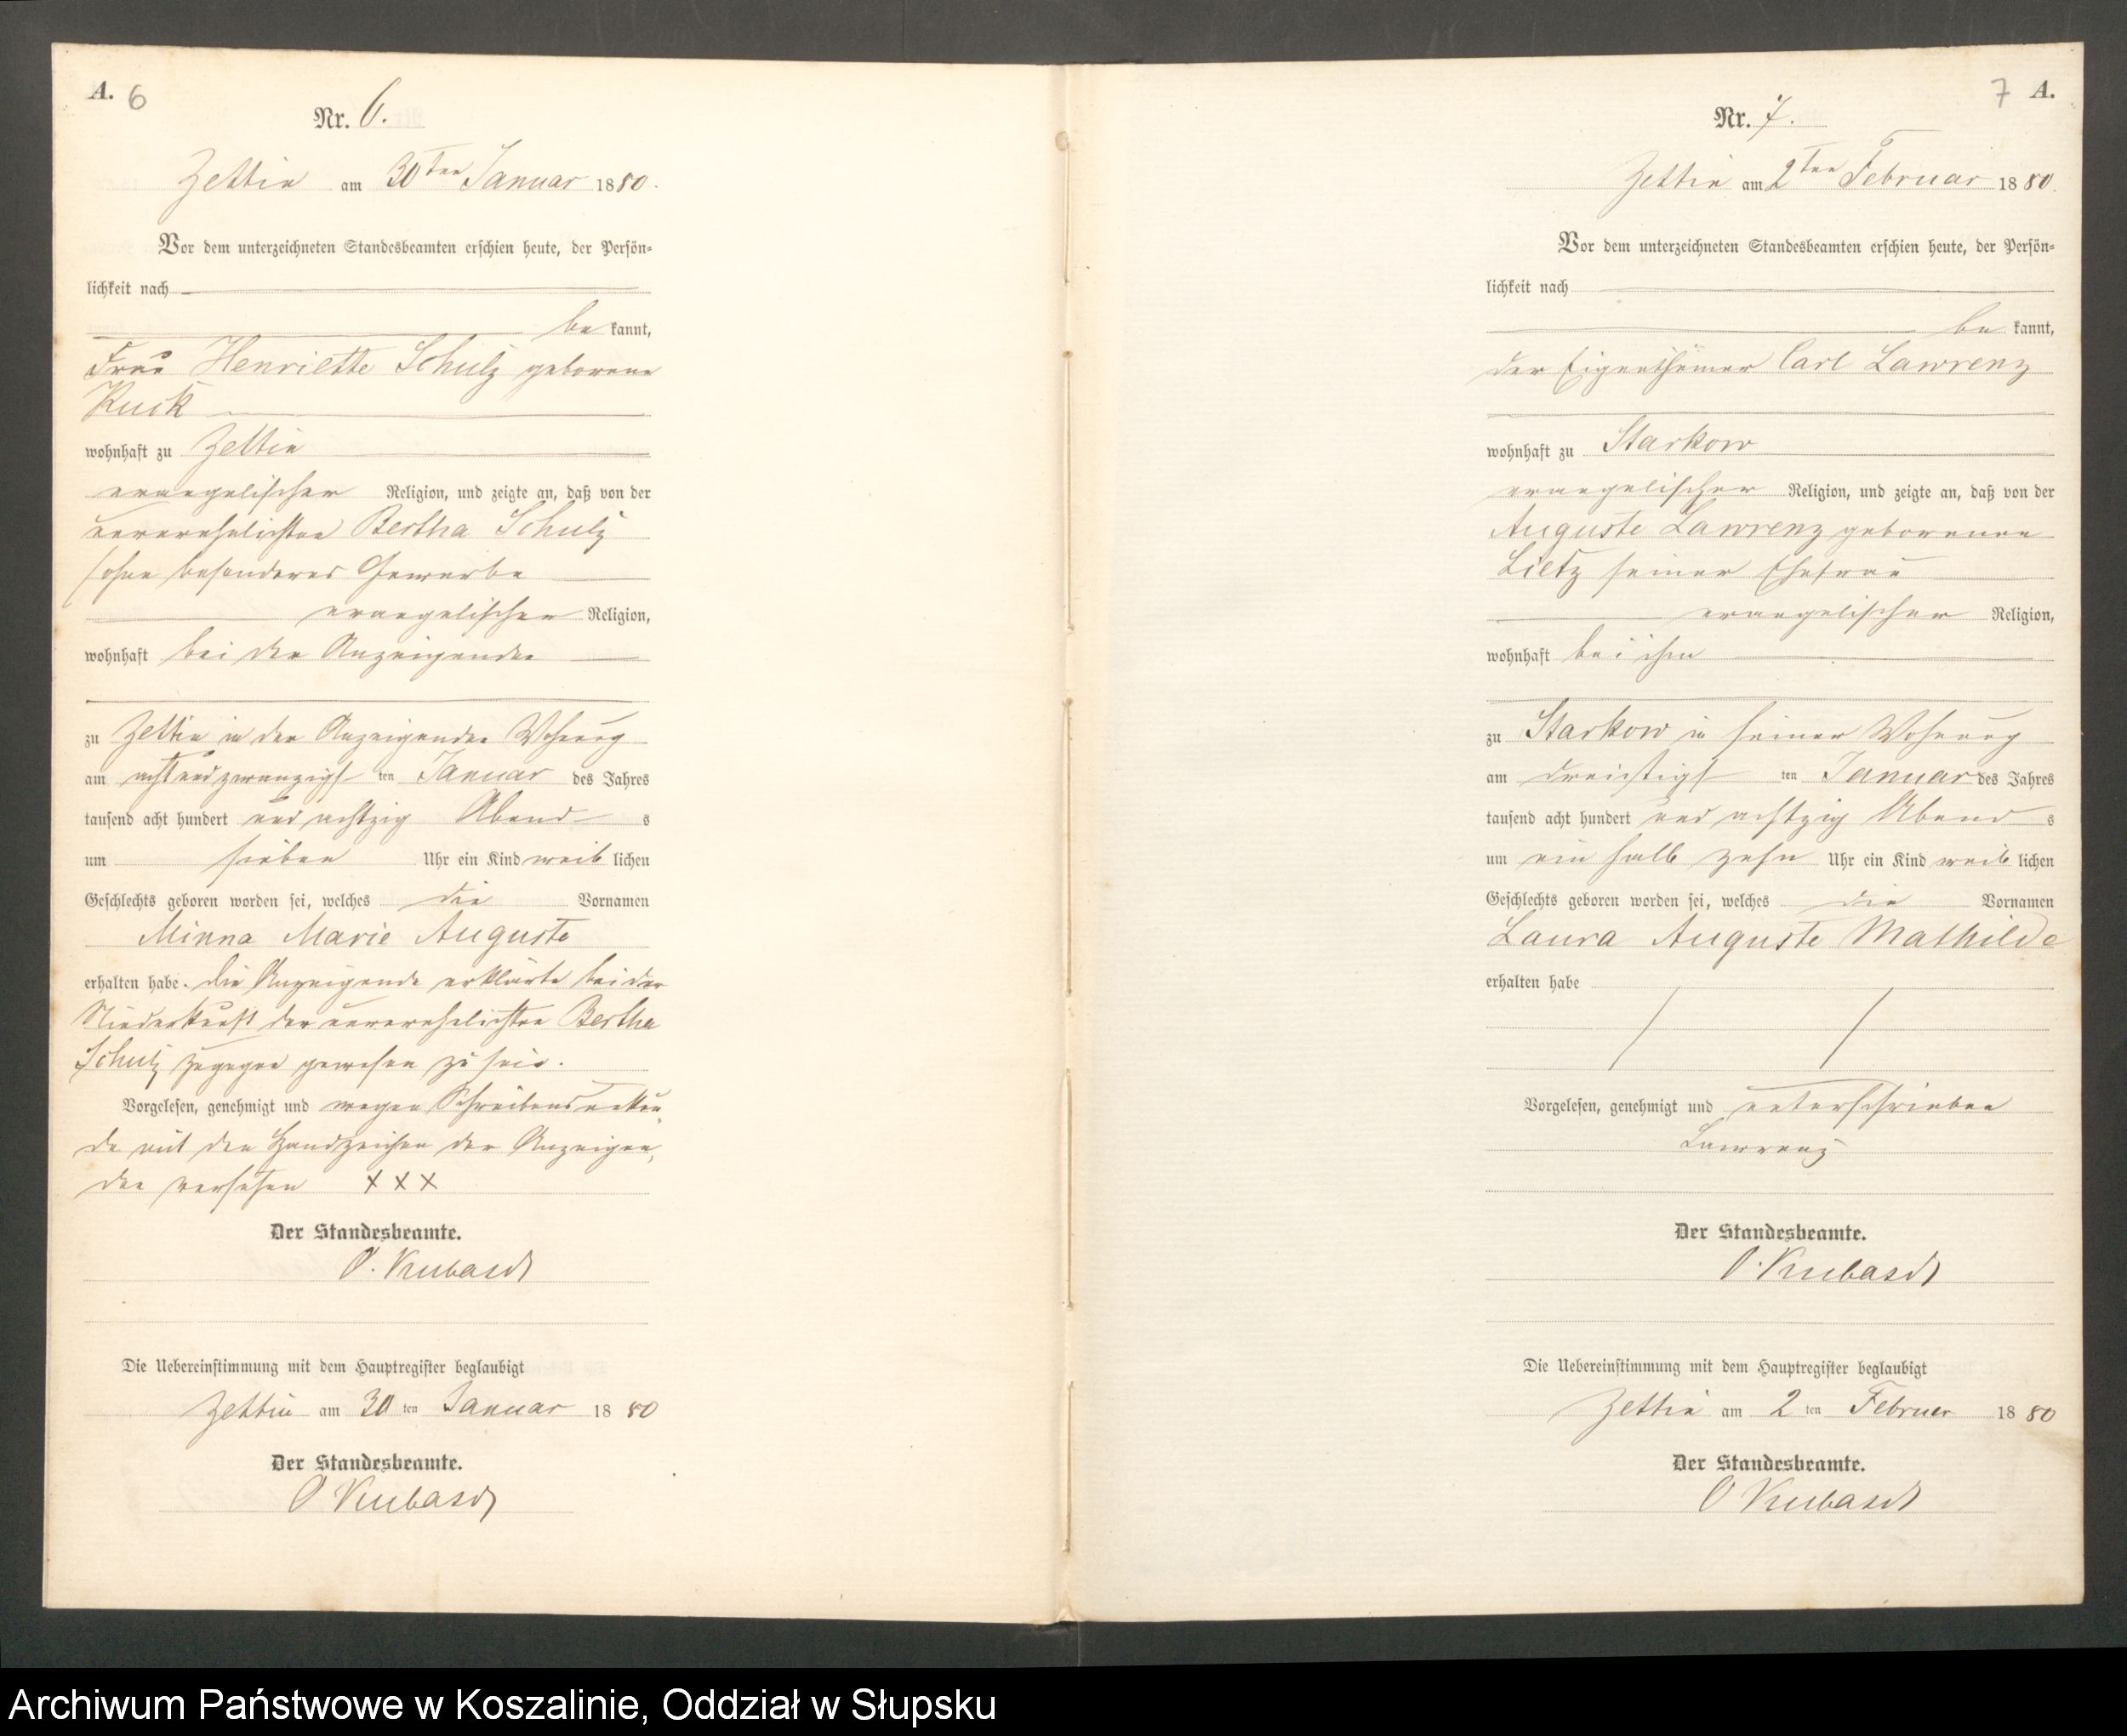 A. 6
Nr. 6.
Zettin am 30ten Januar 1880.
Vor dem unterzeichneten Standesbeamten erschien heute, der Persön-
lichkeit nach
be kannt,
Frau Henriette Schulz geborene
Kuck
wohnhaft zu Zettin
evangelischer Religion, und zeigte an, daß von der
unverehelichten Bertha Schulz
ohne besonderes Gewerbe
evangelischer Religion,
wohnhaft bei der Anzeigenden
zu Zettin in der Anzeigenden Wohnung
am acht und zwanzigst ten Januar des Jahres
tausend acht hundert und achtzig Abend s
um sieben Uhr ein Kind weib lichen
Geschlechts geboren worden sei, welches die Vornamen
Minna Marie Auguste
erhalten habe. Die Anzeigende erklärte bei der
Niederkunft der unverehelichten Bertha
Schulz zugegen gewesen zu sein.
Vorgelesen, genehmigt und wegen Schreibensunkun-
de mit den Handzeichen der Anzeigen-
den versehen + + +
Der Standesbeamte.
O. Kubasch
Die Uebereinstimmung mit dem Hauptregister beglaubigt
Zettin am 30 ten Januar 18 80
Der Standesbeamte.
O Kubasch
7 A.
Nr. 7.
Zettin am 2ten Februar 18 80.
Vor dem unterzeichneten Standesbeamten erschien heute, der Persön-
lichkeit nach
be kannt,
der Eigenthümer Carl Lawrenz
wohnhaft zu Starkow
evangelischer Religion, und zeigte an, daß von der
Auguste Lawrenz geborenen
Lietz seiner Ehefrau
evangelischer Religion,
wohnhaft bei ihm
zu Starkow in seiner Wohnung
am dreißigst ten Januar des Jahres
tausend acht hundert und achtzig Abend s
um ein halb zehn Uhr ein Kind weib lichen
Geschlechts geboren worden sei, welches die Vornamen
Laura Auguste Mathilde
erhalten habe
Vorgelesen, genehmigt und unterschrieben
Lawrenz
Der Standesbeamte.
O. Kubasch
Die Uebereinstimmung mit dem Hauptregister beglaubigt
Zettin am 2 ten Februar 18 80
Der Standesbeamte.
O Kubasch
Archiwum Państwowe w Koszalinie, Oddział w Słupsku